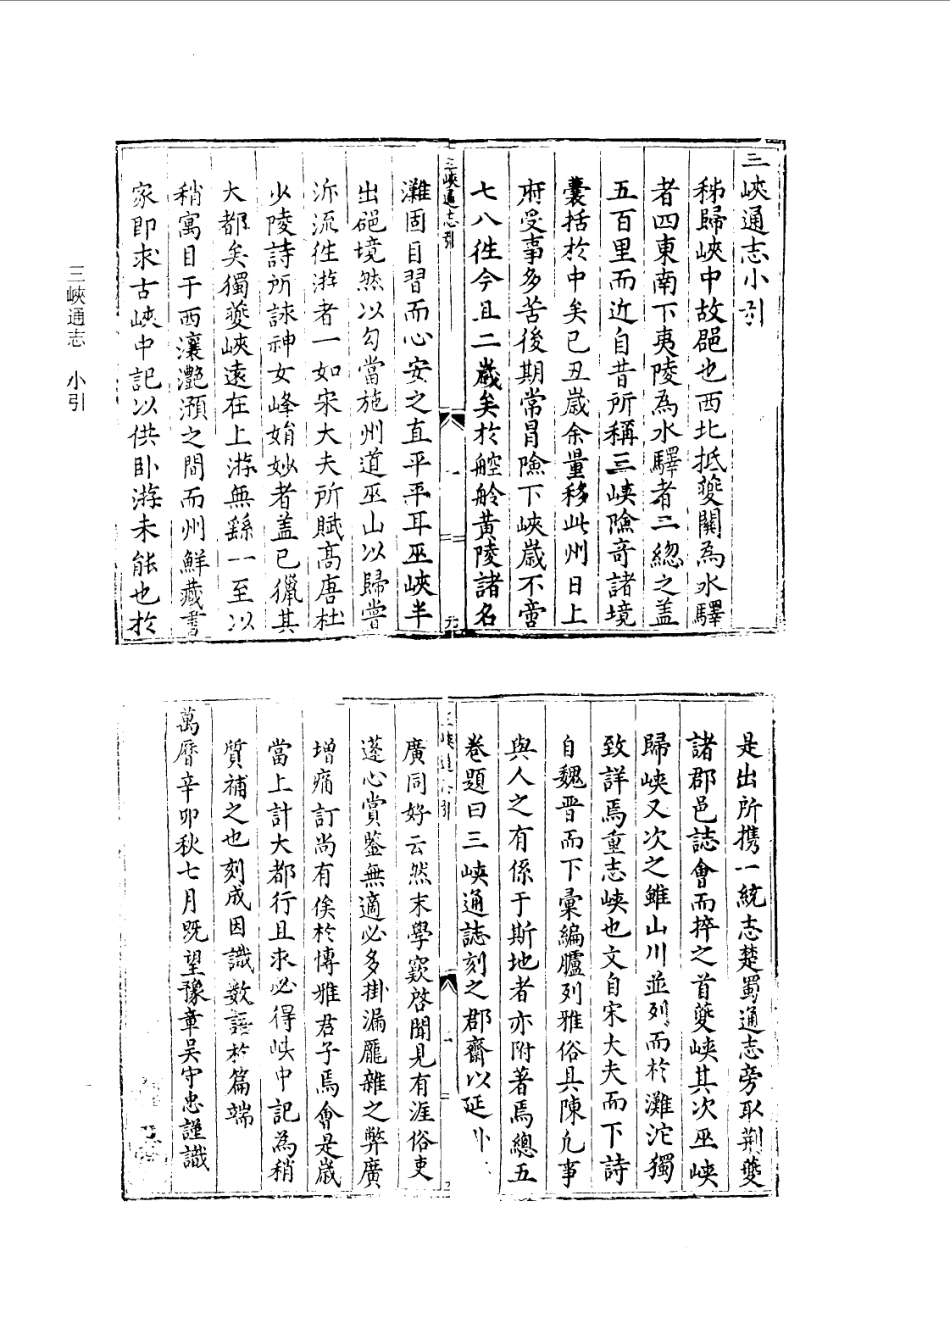 三峽通志小引
秭歸峽中故郡也西北抵夔關為水驛
者四東南下夷陵為水驛者二緫之蓋
五百里而近自昔所稱三峽險奇諸境
囊括於中矣已丑歲余量移此州日上
府受事多苦後期常冒險下峽歲不啻
七八徃今且二歲矣於崆舲黄陵諸名
三峽通志引
一
灘固目習而心安之直平平耳巫峽半
出郡境然以勾當施州道巫山以歸嘗
泝流徃游者一如宋大夫所賦髙唐杜
少陵詩所詠神女峰娟妙者蓋已獵其
大都矣獨夔峽遠在上游無繇一至以
稍寓目于西瀼灧澦之間而州鮮藏書
家即求古峽中記以供卧游未能也於
是出所攜一統志楚蜀通志旁取荆夔
諸郡邑誌會而捽之首夔峽其次巫峽
歸峽又次之雖山川並列而於灘沱獨
致詳焉重志峽也文自宋大夫而下詩
自魏晉而下彙編臚列雅俗具陳凢事
與人之有係于斯地者亦附著焉總五
卷題曰三峽通誌刻之郡齋以延
三峽通引
廣同好云然末學窾啓聞見有涯俗吏
蓬心賞鑒無適必多掛漏厖雜之弊廣
增痛訂尚有俟於博雅君子焉會是歲
當上計大都行且求必得峽中記為稍
質補之也刻成因識數語於篇端
萬曆辛卯秋七月既望豫章吳守忠謹識
三峽通志 小引